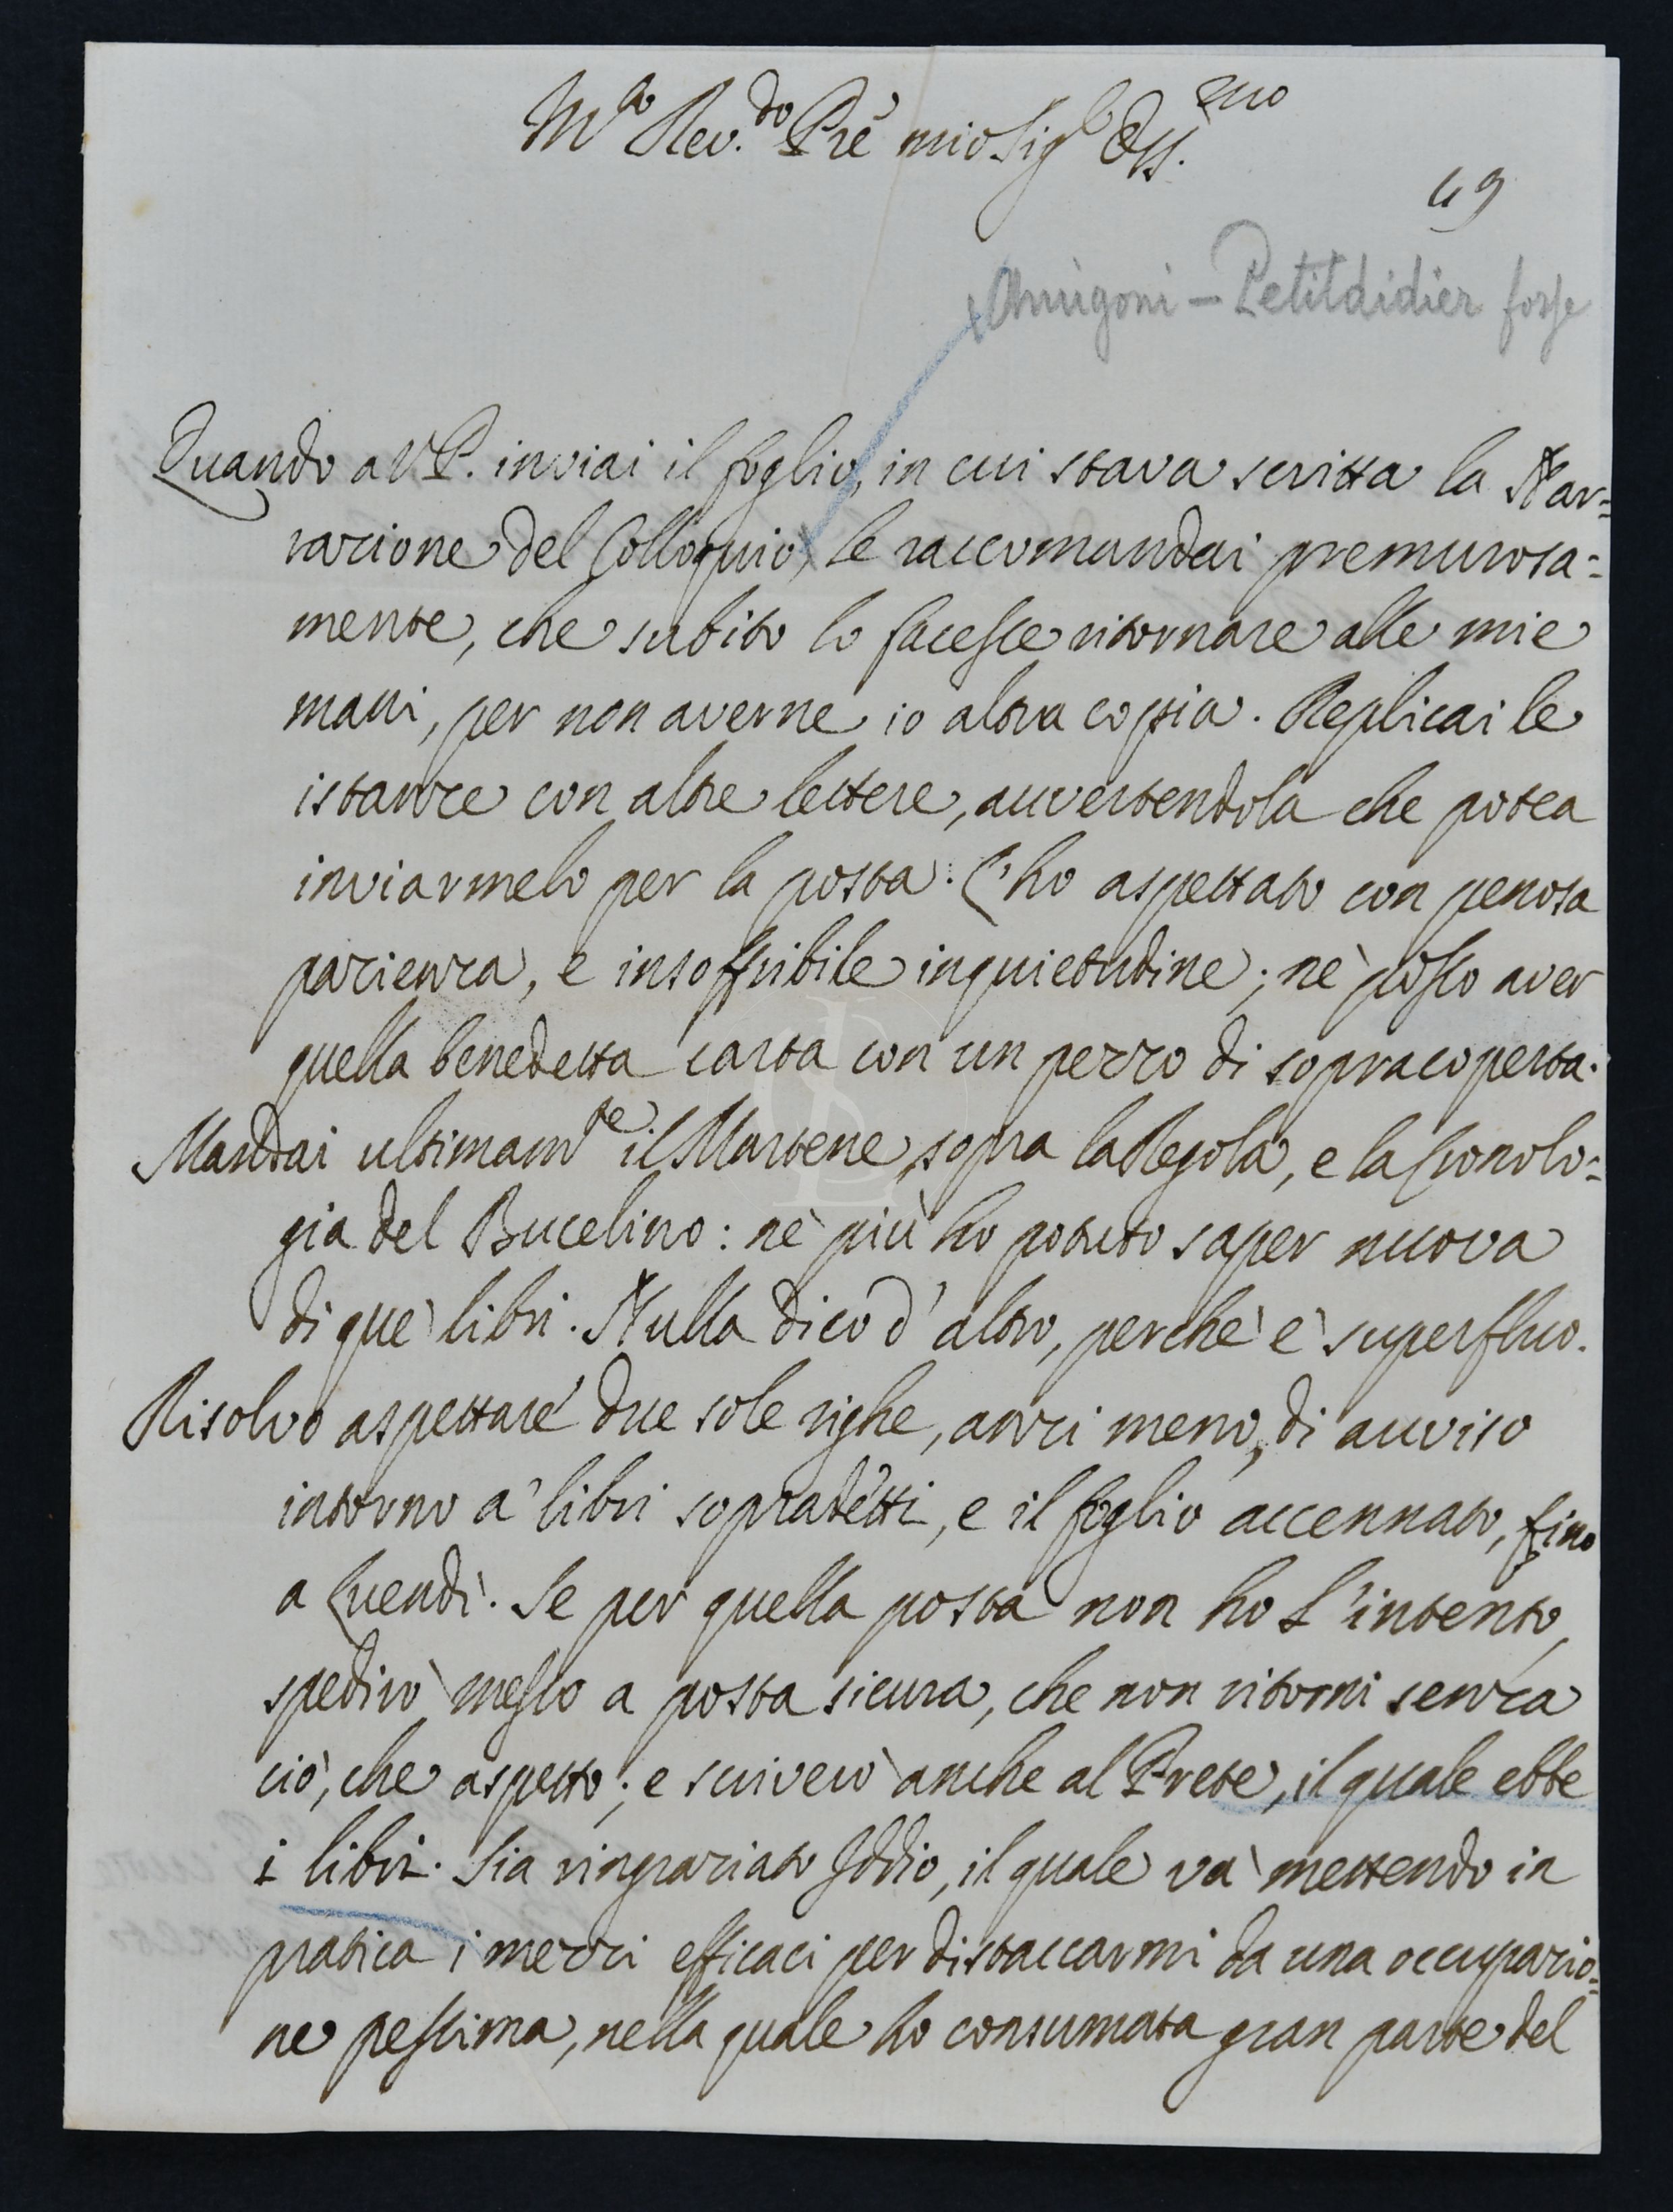 M.to Rev.do Pre' mio Sig.r Oss.mo
49
Amigoni - Petitdidier forse
Quando a V.P. inviai il foglio, in cui stava scritta la Nar=
razione del Colloquio, le raccomandai premurosa=
mente, che subito lo facesse ritornare alle mie
mani, per non averne io altra copia. Replicai le
istanze con altre lettere, avvertendola che potea
inviarmelo per la posta. L'ho aspettato con penosa
pazienza, e insoffribile inquietudine; nè posso aver
quella benedetta carta con un pezzo di sopracoperta.
Mandai ultimam.te il Martene sopra la Regola, e la Cronolo=
gia del Bucelino: nè più ho potuto saper nuova
di que' libri. Nulla dico d'altro, perchè è superfluo.
Risolvo aspettare due sole righe, anzi meno, di avviso
intorno a' libri sopradetti, e il foglio accennato, fino
a Luendì. Se per quella posta non ho l'intento,
spedirò messo a posta sicura, che non ritorni senza
ciò, che aspetto; e scriverò anche al Prete, il quale ebbe
i libri. Sia ringraziato Iddio, il quale và mettendo in
pratica i mezzi efficaci per distaccarmi da una occupazio=
ne pessima, nella quale ho consumata gran parte del